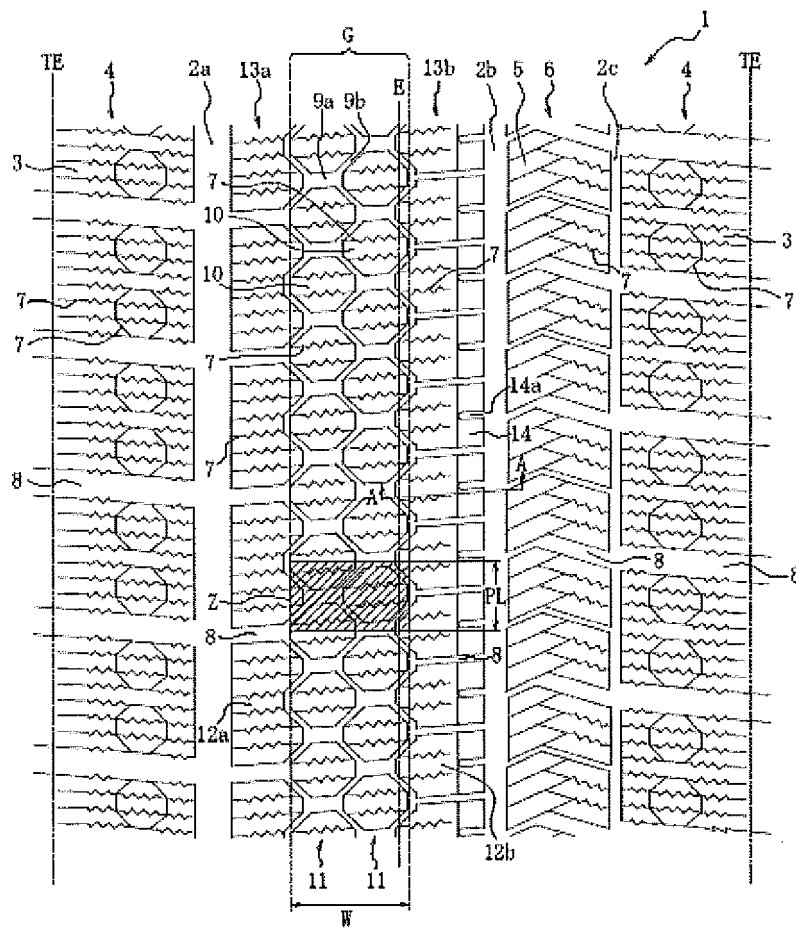 G
1
TE
4
2a
13a
E
13b
2b
5
6
2c
4
TE
9a
9b
3
7
10
10
7
3
7
7
7
7
7
14a
14
7
8
A
A
8
8
Z
PL
8
8
12a
12b
11
11
W